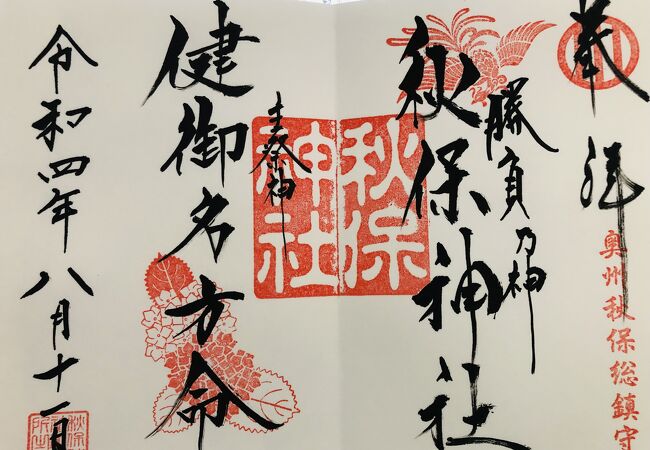 奉拝
奥州秋保総鎮守
勝負乃神
秋保神社
秋保神社
主祭神
健御名方命
令和四年八月十一日